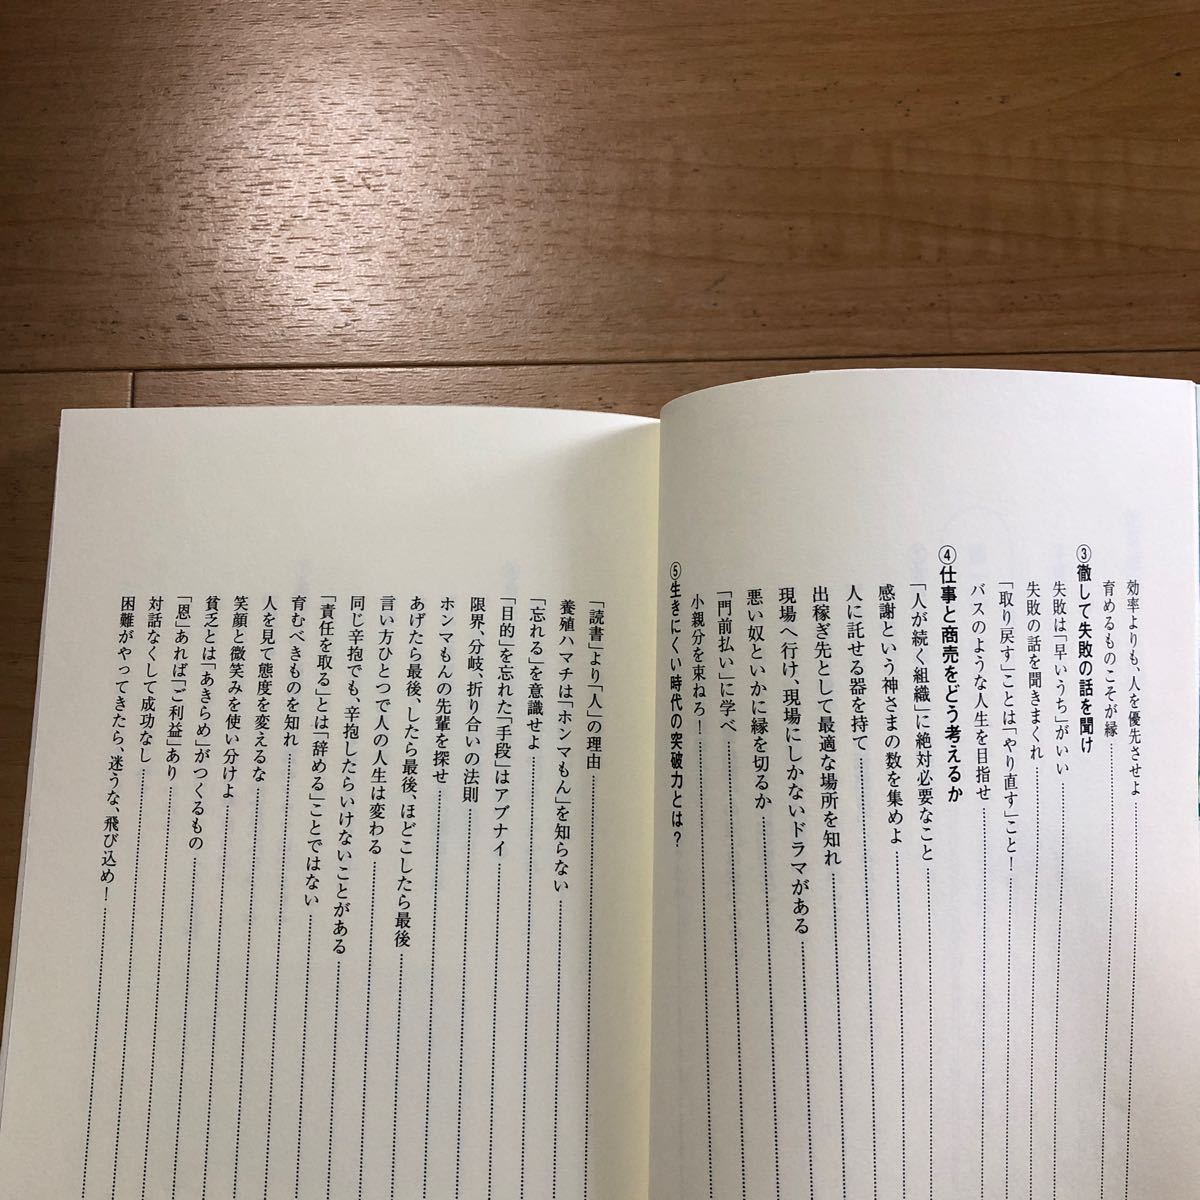 効率よりも、人を優先させよ
育めるものこそが縁
③徹して失敗の話を聞け
失敗は「早いうち」がいい
失敗の話を聞きまくれ
「取り戻す」ことは「やり直す」こと！
バスのような人生を目指せ
④仕事と商売をどう考えるか
「人が続く組織」に絶対必要なこと
感謝という神さまの数を集めよ
人に託せる器を持て
出稼ぎ先として最適な場所を知れ
現場へ行け、現場にしかないドラマがある
悪い奴といかに縁を切るか
「門前払い」に学べ
小親分を束ねろ！
⑤生きにくい時代の突破力とは？
「読書」より「人」の理由
養殖ハマチは「ホンマもん」を知らない
「忘れる」を意識せよ
「目的」を忘れた「手段」はアブナイ
限界、分岐、折り合いの法則
ホンマもんの先輩を探せ
あげたら最後、したら最後、ほどこしたら最後
言い方ひとつで人の人生は変わる
同じ辛抱でも、辛抱したらいけないことがある
「責任を取る」とは「辞める」ことではない
育むべきものを知れ
人を見て態度を変えるな
笑顔と微笑みを使い分けよ
貧乏とは「あきらめ」がつくるもの
「恩」あれば「ご利益」あり
対話なくして成功なし
困難がやってきたら、迷うな、飛び込め！